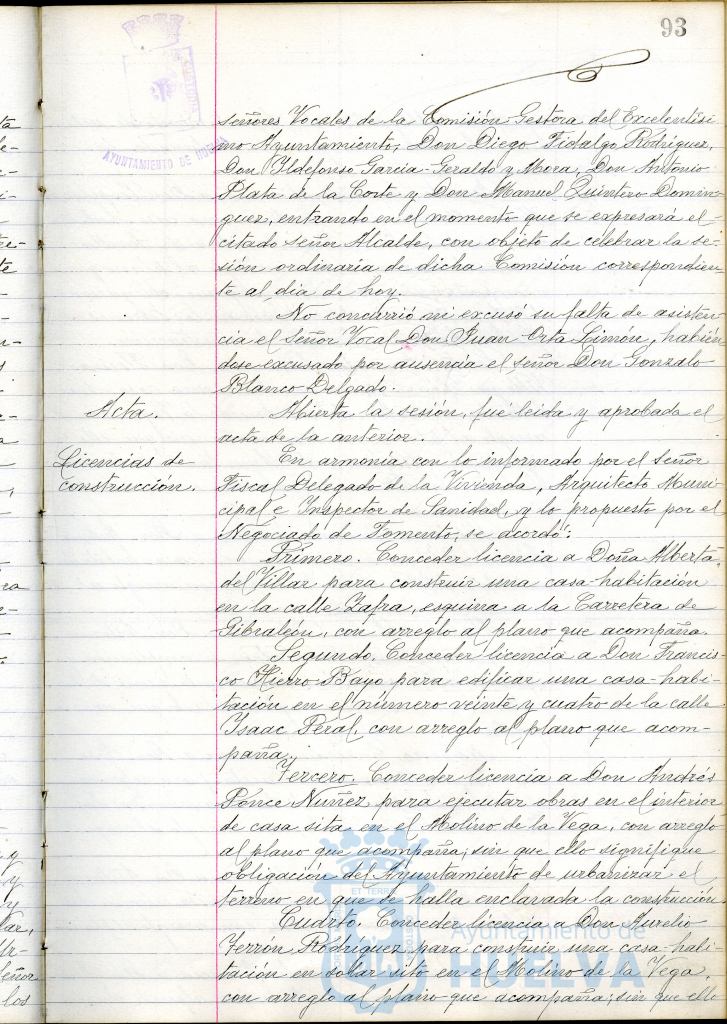 93
AYUNTAMIENTO DE HUELVA
señores Vocales de la Comisión Gestora del Excelentísi
mo Ayuntamiento, Don Diego Fidalgo Rodríguez,
Don Ildefonso García-Geraldo y Mora, Don Antonio
Plata de la Corte y Don Manuel Quintero Domín-
guez, entrando en el momento que se expresará el
citado señor Alcalde, con objeto de celebrar la se-
sión ordinaria de dicha Comisión correspondien
te al día de hoy.
No concurrió ni excusó su falta de asisten
cia el Señor Vocal Don Juan Orta Limón, habién
dose excusado por ausencia el señor Don Gonzalo
Blanco Delgado.
Acta.
Abierta la sesión, fué leida y aprobada el
acta de la anterior.
Licencias de
construcción.
En armonía con lo informado por el señor
Fiscal Delegado de la Vivienda, Arquitecto Muni-
cipal e Inspector de Sanidad, y lo propuesto por el
Negociado de Fomento, se acordó:
Primero. Conceder licencia a Doña Alberta
del Villar para construir una casa-habitación
en la calle Zafra, esquina a la Carretera de
Gibraleón, con arreglo al plano que acompaña.
Segundo. Conceder licencia a Don Francis-
co Hierro Bayo para edificar una casa-habi-
tación en el número veinte y cuatro de la calle
Isaac Peral, con arreglo al plano que acom-
paña.
Tercero. Conceder licencia a Don Andrés
Ponce Nuñez para ejecutar obras en el interior
de casa sita en el Molino de la Vega, con arreglo
al plano que acompaña; sin que ello signifique
obligación del Ayuntamiento de urbanizar el
terreno en que se halla enclavada la construcción.
Cuarto. Conceder licencia a Don Aurelio
Terrón Rodríguez para construir una casa-habi-
tación en solar sito en el Molino de la Vega,
con arreglo al plano que acompaña; sin que ello
Ayuntamiento de
HUELVA